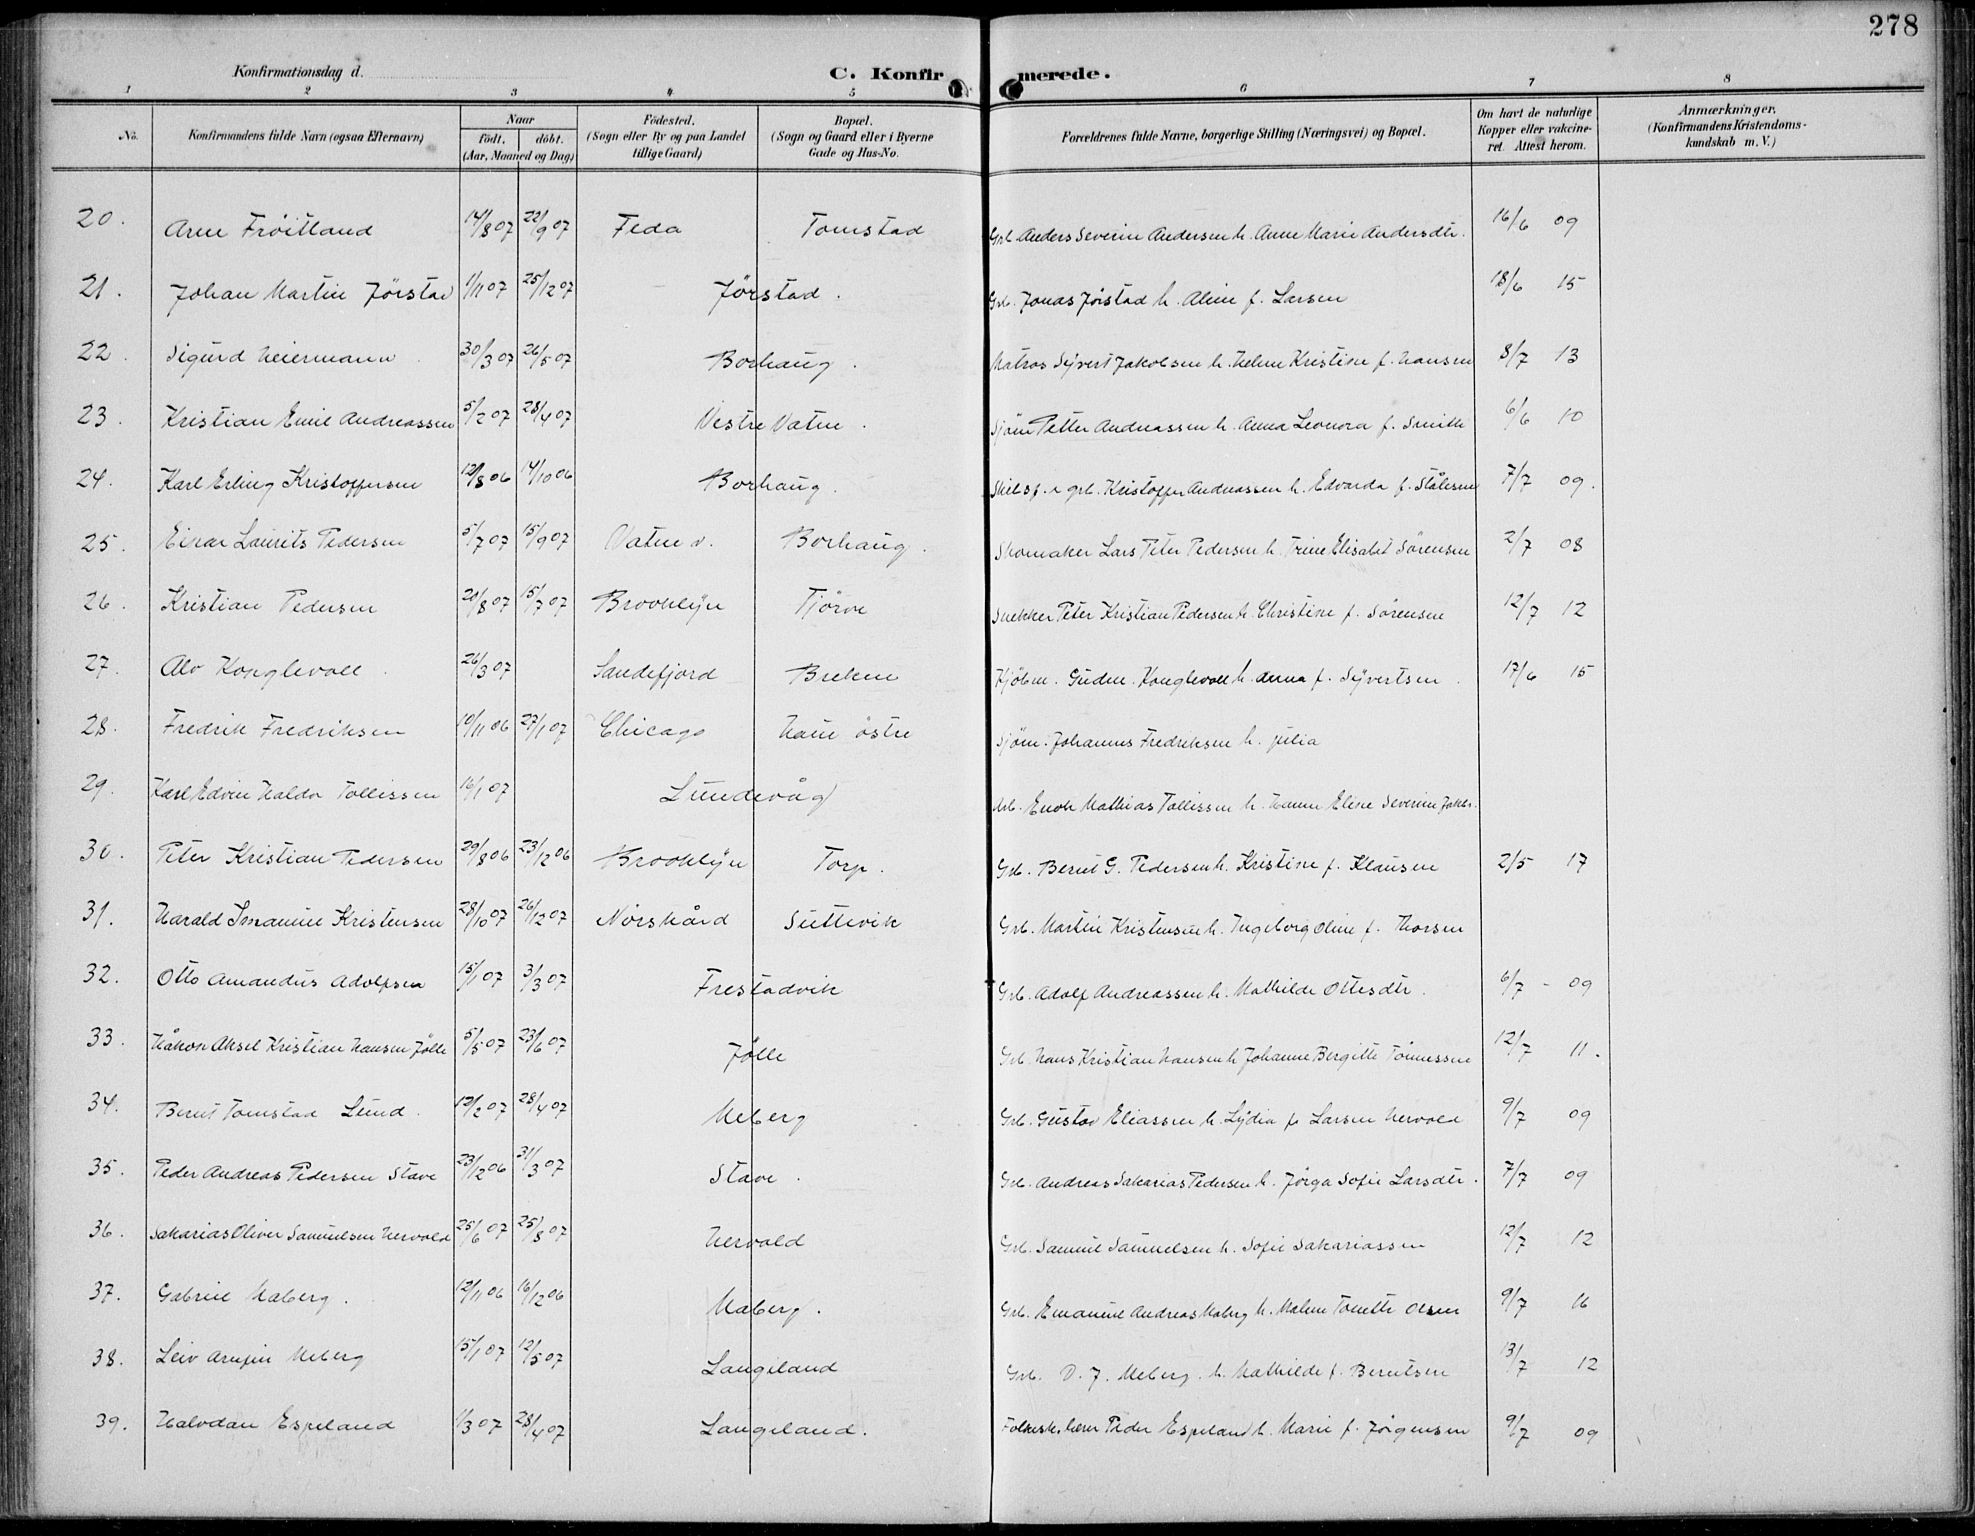 278
Konfirmationsdag d. C. Konfirmerede.
1 2 3 4 5 6 7 8
No. Konfirmandens fulde Navn (ogsaa Efternavn) Naar födt. döbt. (Aar, Maaned og Dag) Födested. (Sogn eller By og paa Landet tillige Gaard) Bopæl. (Sogn og Gaard eller i Byerne Gade og Hus-No. Forældrenes fulde Navne, borgerlige Stilling (Næringsvei) og Bopæl. Om havt de naturlige Kopper eller vaccineret. Attest herom. Anmærkninger. (Konfirmandens Kristendomskundskab m. V.)
20. Arne Fröitland 14/8 07 22/9 07 Feda Tomstad Grb. Anders Severin Andersen h. Anne Marie Andersdtr. 16/6 09
21. Johan Martin Jörstad 1/11 07 25/12 07 Jörstad. Grb. Jonas Jörstad h. Aline f. Larsen 18/6 15
22. Sigurd Heiermann 30/3 07 26/5 07 Borhaug. Matros Syvert Jakobsen h. Helene Kristine f. Hansen 8/7 13
23. Kristian Emil Andreassen 5/2 07 28/4 07 Vestre Vatne. Sjöm Petter Andreassen h. Anna Leonora f. Smith 6/6 10
24. Karl Erling Kristoffersen 12/8 06 14/10 06 Borhaug. Skibsf. & grb. Kristoffer Andreassen h. Edvarda f. Stålesen 7/7 09.
25. Einar Laurits Pedersen 5/7 07 15/9 07 Vatne v. Borhaug. Skomaker Lars Peter Pedersen h. Trine Elisabet Sörensen 2/7 08
26. Kristian Pedersen 20/8 07 15/7 07 Brooklyn Tjörve Snekker Peter Kristian Pedersen h. Christine f. Sörensen 12/7 12
27. Alv Konglevoll. 26/3 07 Sandefjord Brekne Kjöbm. Gudm. Konglevoll h. Anna f. Syvertsen. 17/6 15
28. Fredrik Fredriksen 10/11 06 27/1 07 Chicago Haue östre Sjöm. Johannes Fredriksen h. Julia
29. Karl Edvin Haldor Tollissen 16/1 07 Lundevåg Arb. Enok Mathias Tollissen h. Hanne Eline Severine Jakbs.
30. Peter Kristian Pedersen 29/8 06 23/12 06 Brooklyn Torp. Grb. Bernt G. Pedersen h. Kristine f. Klausen 2/5 17
31. Harald Imanuel Kristensen 28/10 07 26/12 07 Nörskård Suttevik Grb. Martin Kristensen h. Ingeborg Oline f. Thorsen
32. Otto Amandus Adolfsen 15/1 07 3/3 07 Frestadvik Grb. Adolf Andreassen h. Mathilde Ottesdtr. 6/7 - 09
33. Håkon Aksel Kristian Hansen Jölle 5/5 07 23/6 07 Jölle Grb. Hans Kristian Hansen h. Johanne Bergitte Tönnessen 12/7 11.
34. Bernt Tomstad Lund. 12/2 07 28/4 07 Meberg Grb. Gustav Eliassen h. Lydia f. Larsen Hervold 9/7 09
35. Peder Andreas Pedersen Stave 23/12 06 31/3 07 Stave. Grb. Andreas Sakarias Pedersen h. Jörga Sofie Larsdtr. 7/7 09
36. Sakarias Oliver Samuelsen Hervold 25/6 07 25/8 07 Hervold Grb. Samuel Samuelsen h. Sofie Sakariassen 12/7 12
37. Gabriel Maberg. 12/11 06 16/12 06 Maberg. Grb. Emanuel Andreas Maberg h. Malene Tonette Olsen 9/7 16
38. Leiv Meberg 15/1 07 12/5 07 Langeland Grb. D. J. Meberg. h. Mathilde f. Berntsen 13/7 12
39. Halvdan Espeland 1/3 07 28/4 07 Langeland. Folkesk. lærer Peder Espeland h. Marie f. Jörgensen 9/7 09